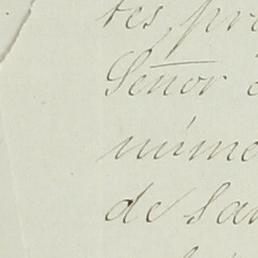 tes, pre
Señor
núme
de San